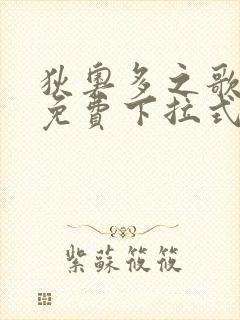 狄奧多之歌
免費下拉式
紫蘇筱筱